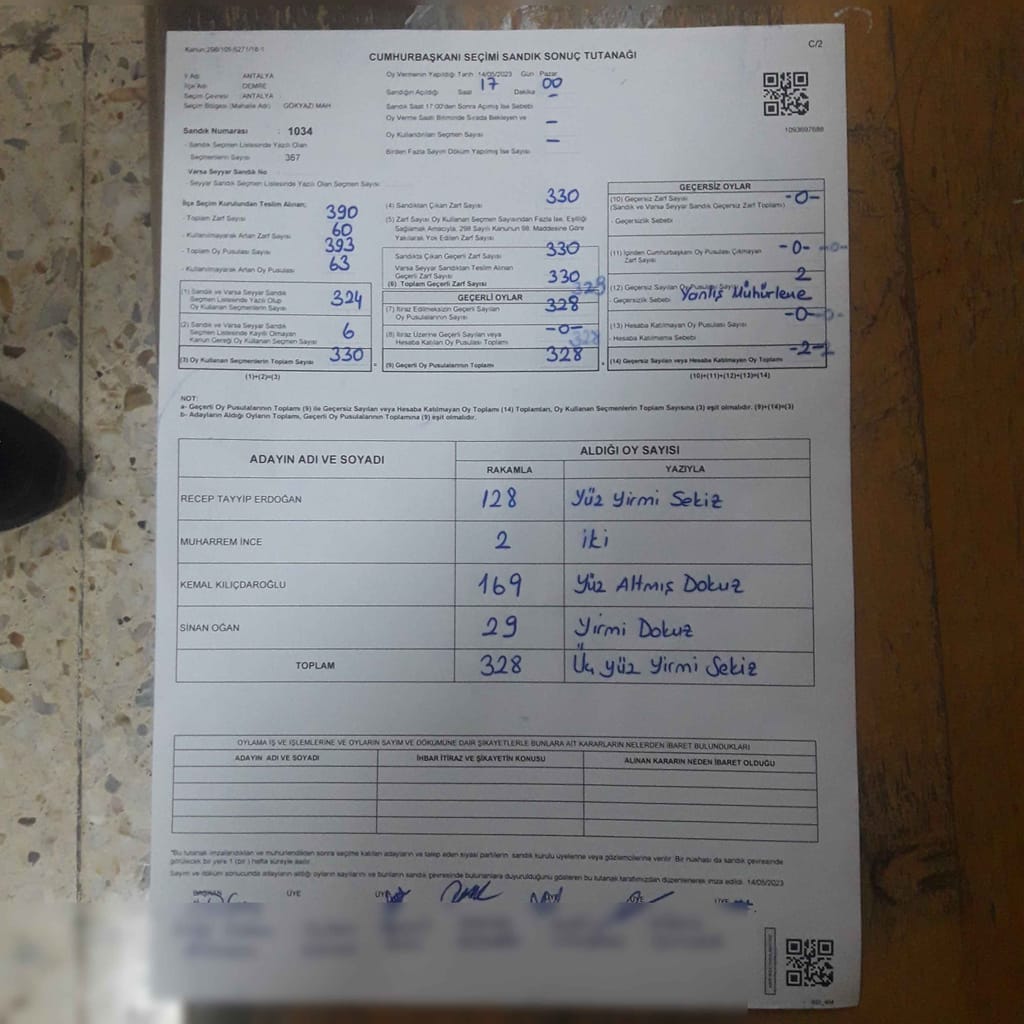 Kanun:298/109-6271/16-1
C/2
CUMHURBAŞKANI SEÇİMİ SANDIK SONUÇ TUTANAĞI
İl Adı ANTALYA
İlçe Adı DEMRE
Seçim Çevresi ANTALYA
Seçim Bölgesi (Mahalle Adı) GÖKYAZI MAH
Sandık Numarası : 1034
- Sandık Seçmen Listesinde Yazılı Olan
Seçmenlerin Sayısı 367
Varsa Seyyar Sandık No
- Seyyar Sandık Seçmen Listesinde Yazılı Olan Seçmen Sayısı
Oy Vermenin Yapıldığı Tarih 14/05/2023 Gün Pazar
Sandığın Açıldığı Saat 17 Dakika 00
Sandık Saat 17:00'den Sonra Açılmış İse Sebebi -
Oy Verme Saati Bitiminde Sırada Bekleyen ve
Oy Kullandırılan Seçmen Sayısı -
Birden Fazla Sayım Döküm Yapılmış İse Sayısı -
1093697688
İlçe Seçim Kurulundan Teslim Alınan;
- Toplam Zarf Sayısı 390
- Kullanılmayarak Artan Zarf Sayısı 60
- Toplam Oy Pusulası Sayısı 393
- Kullanılmayarak Artan Oy Pusulası 63
(1) Sandık ve Varsa Seyyar Sandık
Seçmen Listesinde Yazılı Olup
Oy Kullanan Seçmenlerin Sayısı 324
(2) Sandık ve Varsa Seyyar Sandık
Seçmen Listesinde Kayıtlı Olmayan
Kanun Gereği Oy Kullanan Seçmen Sayısı 6
(3) Oy Kullanan Seçmenlerin Toplam Sayısı 330
(1)+(2)=(3)
(4) Sandıktan Çıkan Zarf Sayısı 330
(5) Zarf Sayısı Oy Kullanan Seçmen Sayısından Fazla İse, Eşitliği
Sağlamak Amacıyla, 298 Sayılı Kanunun 98. Maddesine Göre
Yakılarak Yok Edilen Zarf Sayısı
Sandıkta Çıkan Geçerli Zarf Sayısı 330
Varsa Seyyar Sandıktan Teslim Alınan
Geçerli Zarf Sayısı
(6) Toplam Geçerli Zarf Sayısı 330
GEÇERLİ OYLAR 328
(7) İtiraz Edilmeksizin Geçerli Sayılan
Oy Pusulalarının Sayısı 328
(8) İtiraz Üzerine Geçerli Sayılan veya
Hesaba Katılan Oy Pusulaları Toplamı -0- 328
(9) Geçerli Oy Pusulalarının Toplamı 328
GEÇERSİZ OYLAR
(10) Geçersiz Zarf Sayısı
(Sandık ve Varsa Seyyar Sandık Geçersiz Zarf Toplamı) -0-
- Geçersizlik Sebebi
(11) İçinden Cumhurbaşkanı Oy Pusulası Çıkmayan
Zarf Sayısı -0- -0-
(12) Geçersiz Sayılan Oy Pusulası Sayısı 2
- Geçersizlik Sebebi Yanlış Mühürleme
(13) Hesaba Katılmayan Oy Pusulası Sayısı -0- -0-
- Hesaba Katılmama Sebebi
(14) Geçersiz Sayılan veya Hesaba Katılmayan Oy Toplamı -2-
(10)+(11)+(12)+(13)=(14)
NOT:
a- Geçerli Oy Pusulalarının Toplamı (9) ile Geçersiz Sayılan veya Hesaba Katılmayan Oy Toplamı (14) Toplamları, Oy Kullanan Seçmenlerin Toplam Sayısına (3) eşit olmalıdır. (9)+(14)=(3)
b- Adayların Aldığı Oyların Toplamı, Geçerli Oy Pusulalarının Toplamına (9) eşit olmalıdır.
ADAYIN ADI VE SOYADI
ALDIĞI OY SAYISI
RAKAMLA YAZIYLA
RECEP TAYYİP ERDOĞAN 128 Yüz Yirmi Sekiz
MUHARREM İNCE 2 iki
KEMAL KILIÇDAROĞLU 169 Yüz Altmış Dokuz
SİNAN OĞAN 29 Yirmi Dokuz
TOPLAM 328 Üç yüz Yirmi Sekiz
OYLAMA İŞ VE İŞLEMLERİNE VE OYLARIN SAYIM VE DÖKÜMÜNE DAİR ŞİKAYETLERLE BUNLARA AİT KARARLARIN NELERDEN İBARET BULUNDUKLARI
ADAYIN ADI VE SOYADI İHBAR İTİRAZ VE ŞİKAYETİN KONUSU ALINAN KARARIN NEDEN İBARET OLDUĞU
"Bu tutanak imzalandıktan ve mühürlendikten sonra seçime katılan adayların ve talep eden siyasi partilerin sandık kurulu üyelerine veya gözlemcilerine verilir. Bir nüshası da sandık çevresinde
görülecek bir yere 1 (bir) hafta süreyle asılır.
Sayım ve döküm sonucunda adayların aldığı oyların sayılarını ve bunların sandık çevresinde bulunanlara duyurulduğunu gösteren bu tutanak tarafımızdan düzenlenerek imza edildi. 14/05/2023
BAŞKAN ÜYE ÜYE ÜYE ÜYE